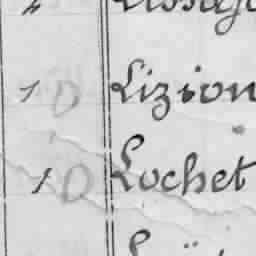 1 D Lizion
1 D Lochet